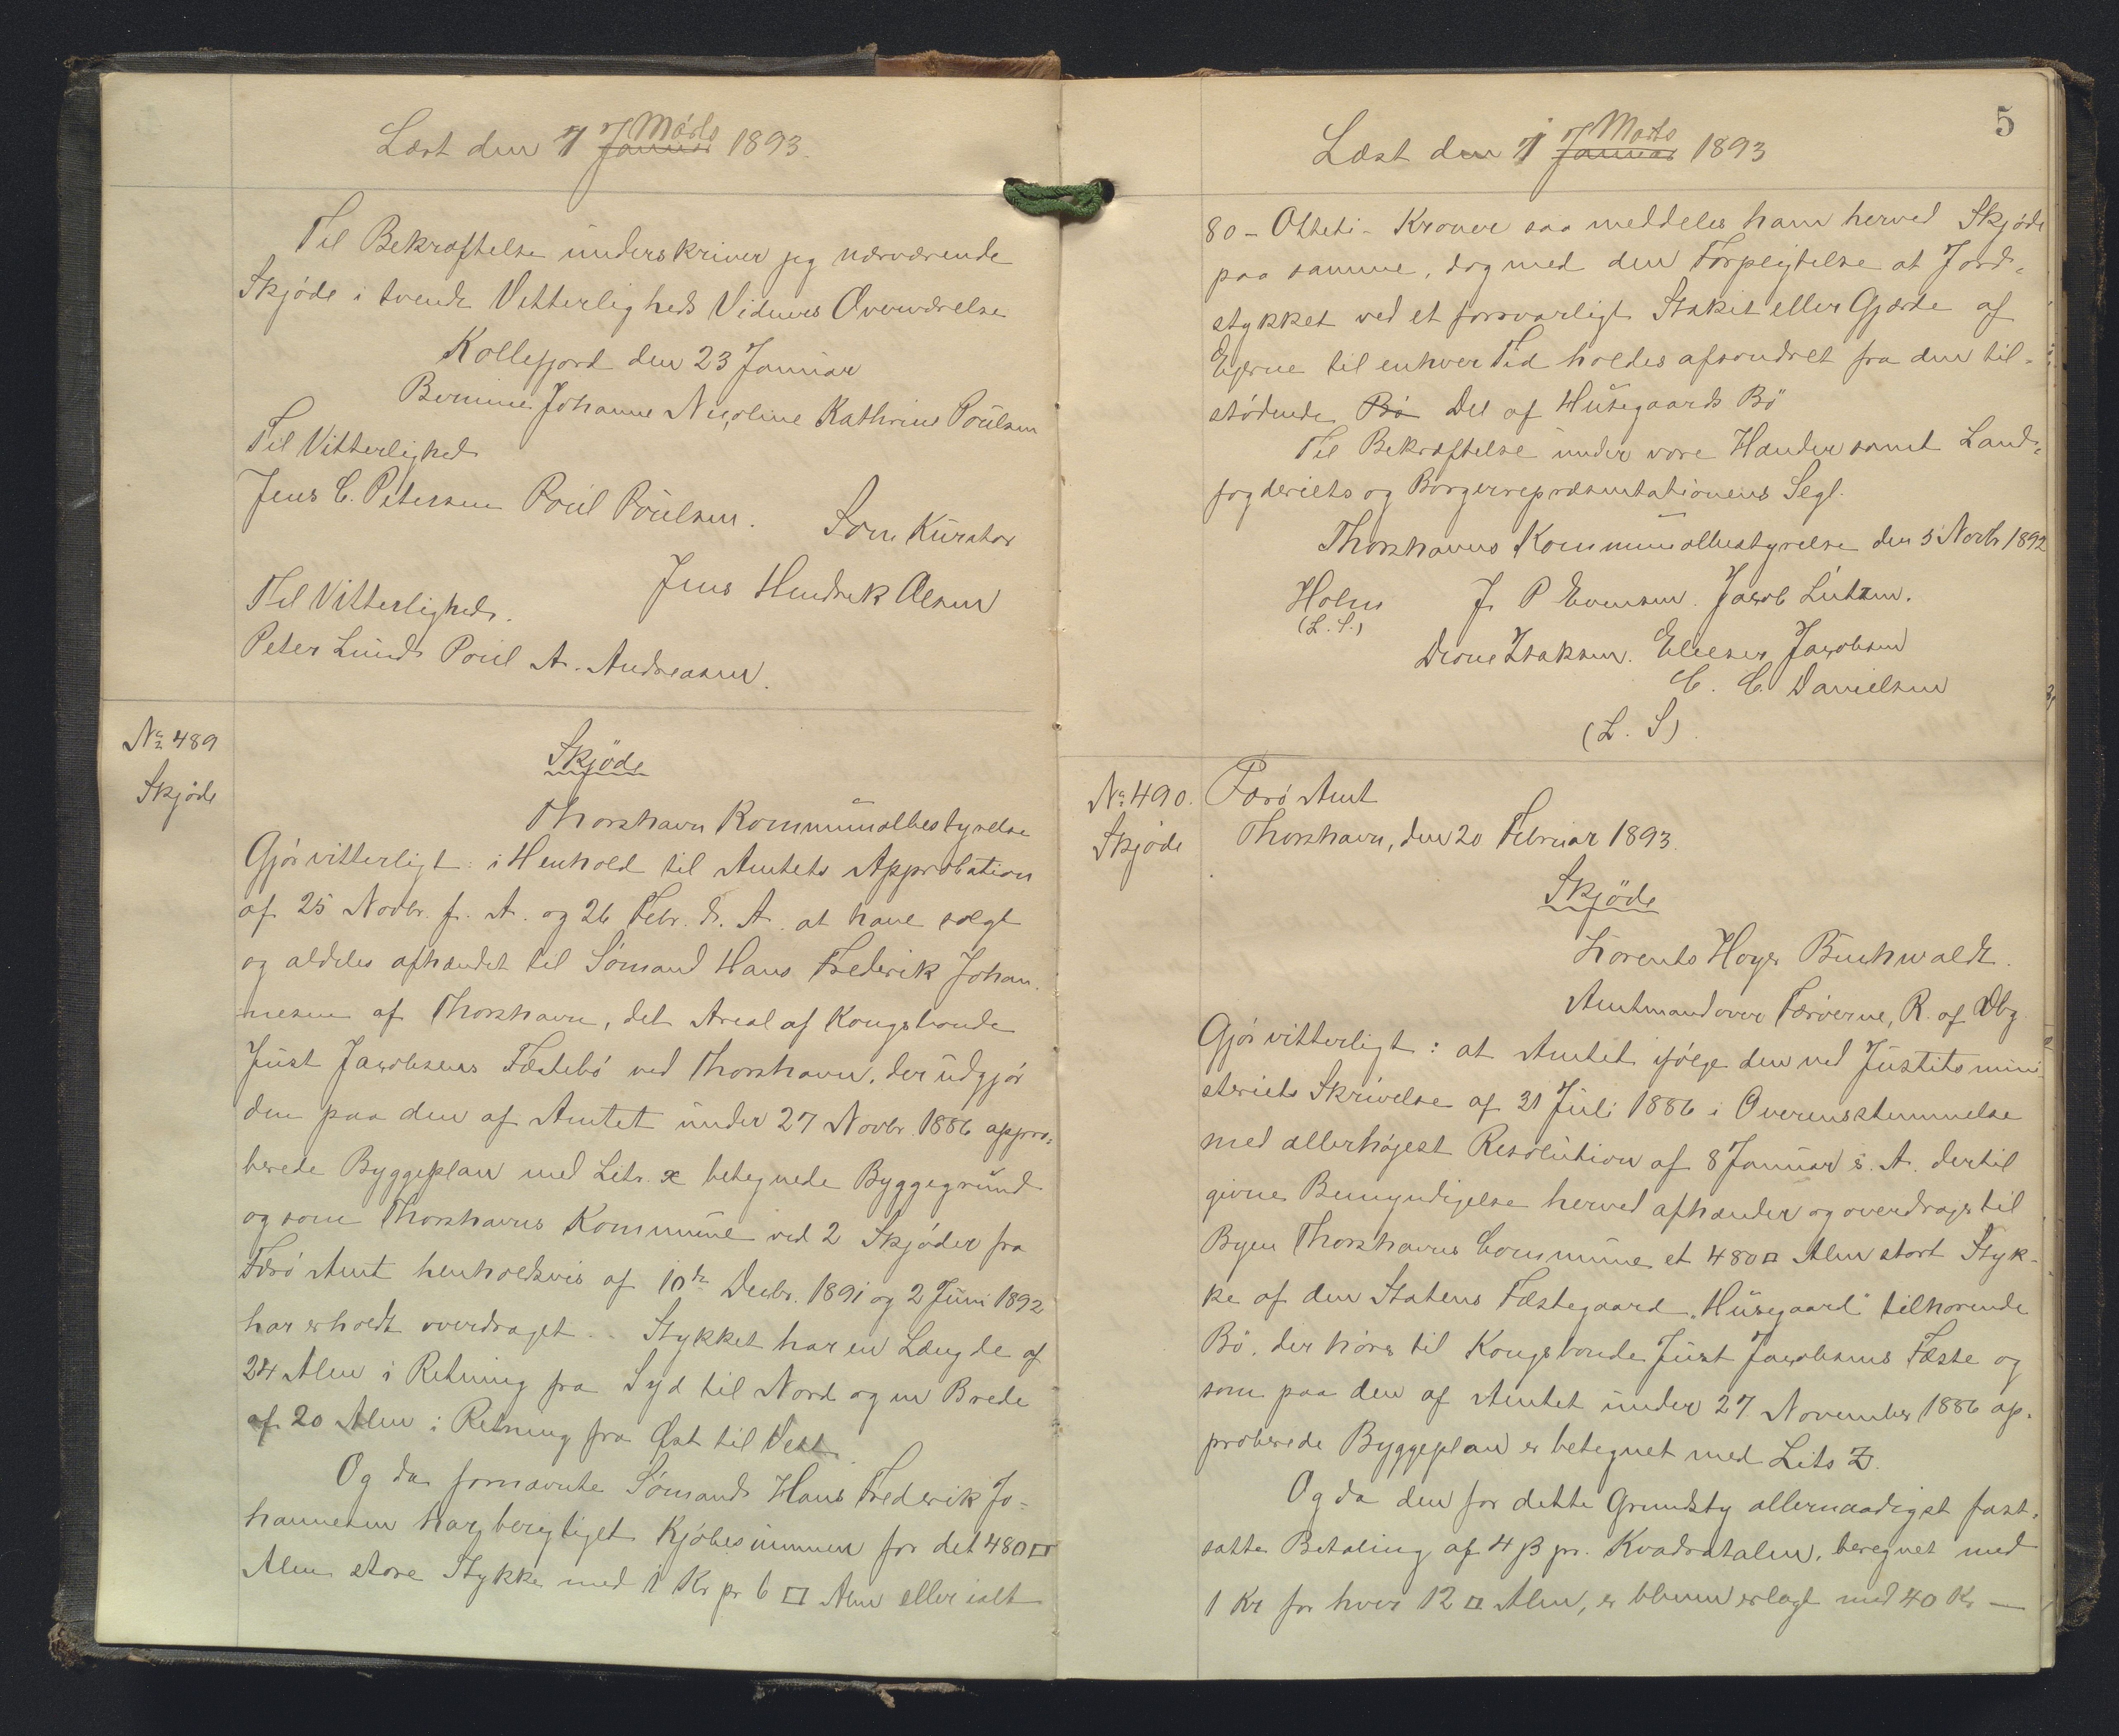 Læst den 7 Marts
Januar 1893.
Til Bekræftelse underskriver jeg nærværende
Skjøde i tvende Vitterligheds Vidners Overværelse
Kollefjord den 23 Januar
Johanne Nicoline Kathrine Poulsen
Til Vitterlighed
Jens C. Petersen Poul Poulsen.
Som Kurator
Jens Hendrik Olsen
Til Vitterlighed.
Peter Lund Poul A. Andreasen.
No 489
Skjøde
Skjøde
Thorshavn Kommunalbestyrelse
Gjør vitterligt: i Henhold til Amtets Approbation
af 25 Novbr. f. A. og 26 Febr. d. A. at have solgt
og aldeles afhændet til Sømand Hans Frederik Johan-
nesen af Thorshavn, det Areal af Kongsbonde
Just Jacobsens Fæstebø ved Thorshavn, der udgjør
den paa den af Amtet under 27 Novbr. 1886 appro=
berede Byggeplan med Litr. æ betegnede Byggegrund
og som Thorshavns Kommune ved 2 Skjøder fra
Færø Amt henholdsvis af 10de Decbr. 1891 og 2 Juni 1892
har erholdt overdraget. Stykket har en Længde af
24 Alen i Retning fra Syd til Nord og en Brede
af 20 Alen i Retning fra Øst til Vest.
Og da fornævnte Sømand Hans Frederik Jo=
hannesen har berigtiget Kjøbesummen for det 480 □
Alen store Stykke med 1 Kr pr 6 □ Alen eller ialt
5
Læst den 7 Marts
Januar 1893
80 - Otteti - Kroner saa meddeles ham herved Skjøde
paa samme, dog med den Forpligtelse at Jord=
stykket ved et forsvarligt Stakit eller Gjærde af
Ejerne til enhver Tid holdes afsondret fra den til=
stødende Bø Del af Husegaards Bø
Til Bekræftelse under vore Hænder samt Land=
fogderiets og Borgerrepræsentationens Segl.
Thorshavns Kommunalbestyrelse den 5 Novbr 1892
Holm J. P Evensen. Jacob Lützen.
(L. S.)
Isaksen. Elieser Jacobsen
C. C. Danielsen
(L. S)
No 490.
Skjøde
Færø Amt
Thorshavn, den 20 Februar 1893.
Skjøde
Lorents Høyer Buchwaldt.
Amtmand over Færøerne, R. af Dbg
Gjør vitterligt: at Amtet ifølge den ved Justitsmini
steriets Skrivelse af 31 Juli 1886 i Overensstemmelse
med allerhøjest Resolution af 8 Januar s. A. dertil
givne Bemyndigelse herved afhænder og overdrager til
Byen Thorshavns Commune et 480 □ Alen stort Styk-
ke af den Statens Fæstegaard "Husegaard" tilhørende
Bø, der hører til Kongsbonde Just Jacobsens Fæste og
som paa den af Amtet under 27 November 1886 ap-
proberede Byggeplan er betegnet med Litr Z.
Og da den for dette Grundsty allernaadigst fast=
satte Betaling af 4 β pr. Kvadratalen, beregnet med
1 Kr for hver 12 □ Alen, er bleven erlagt med 40 Kr —